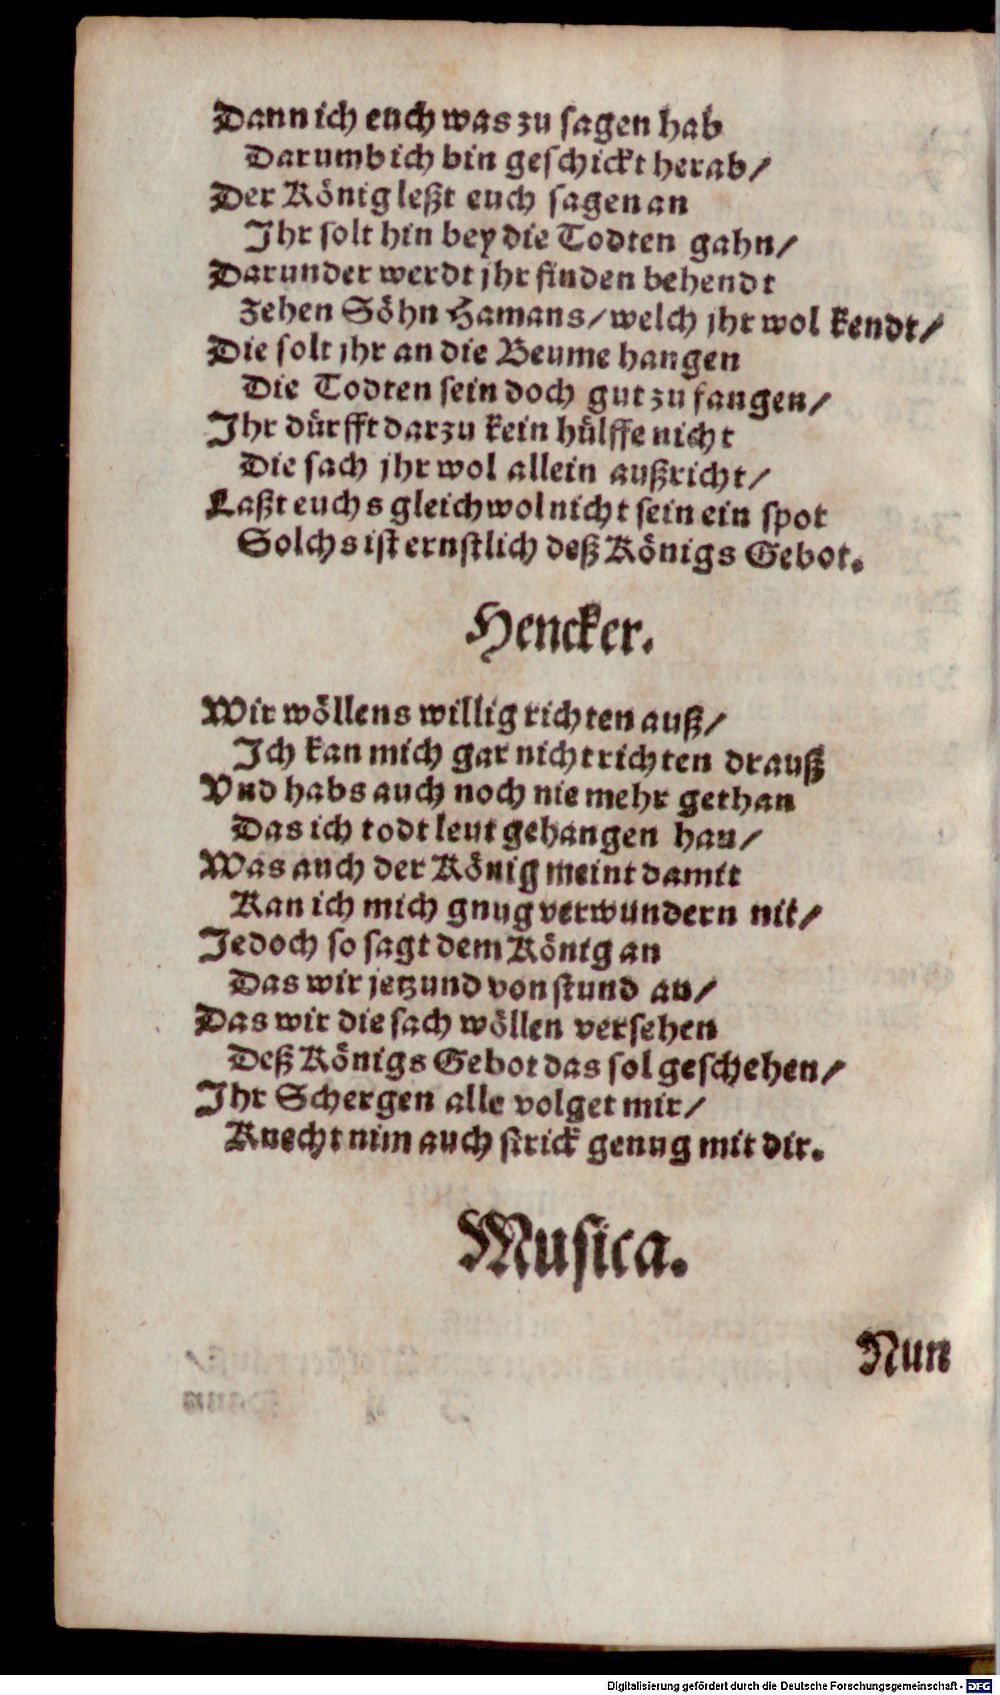 Dann ich euch was zu sagen hab
Darumb ich bin geschickt herab/
Der König leßt euch sagen an
Ihr solt hin bey die Todten gahn/
Darunder werdt jhr finden behendt
zehen Söhn Hamans/welch jhr wol kendt/
Die solt jhr an die Beume hangen
Die Todten sein doch gut zu fangen/
Ihr dürfft darzu kein hülffe nicht
Die sach jhr wol allein außricht/
Laßt euchs gleichwol nicht sein ein spot
Solchs ist ernstlich deß Königs Gebot.
Hencker.
Wir wöllens willig richten auß/
Ich kan mich gar nicht richten drauß
Vnd habs auch noch nie mehr gethan
Das ich todt leut gehangen han/
Was auch der König meint damit
Kan ich mich gnug verwundern nit/
Jedoch so sagt dem König an
Das wir jetzund von stund an/
Das wir die sach wöllen versehen
Deß Königs Gebot das sol geschehen/
Ihr Schergen alle volget mir/
Knecht nim auch strick genug mit dir.
Musica.
Nun
Digitalisierung gefördert durch die Deutsche Forschungsgemeinschaft - DFG